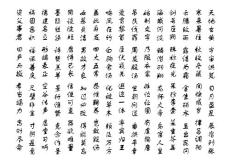 天地玄黃宇宙洪荒日月盈昃辰宿列張
寒來暑往秋收冬藏閏餘成歲律呂調陽
雲騰致雨露結為霜金生麗水玉出崑岡
劍號巨闕珠稱夜光果珍李柰菜重芥薑
海鹹河淡鱗潛羽翔龍師火帝鳥官人皇
始制文字乃服衣裳推位讓國有虞陶唐
弔民伐罪周發殷湯坐朝問道垂拱平章
愛育黎首臣伏戎羌遐邇一體率賓歸王
鳴鳳在竹白駒食場化被草木賴及萬方
蓋此身髮四大五常恭惟鞠養豈敢毀傷
女慕貞潔男效才良知過必改得能莫忘
罔談彼短靡恃己長信使可覆器欲難量
墨悲絲染詩讚羔羊景行維賢克念作聖
德建名立形端表正空谷傳聲虛堂習聽
禍因惡積福緣善慶尺璧非寶寸陰是競
資父事君曰嚴與敬孝當竭力忠則盡命